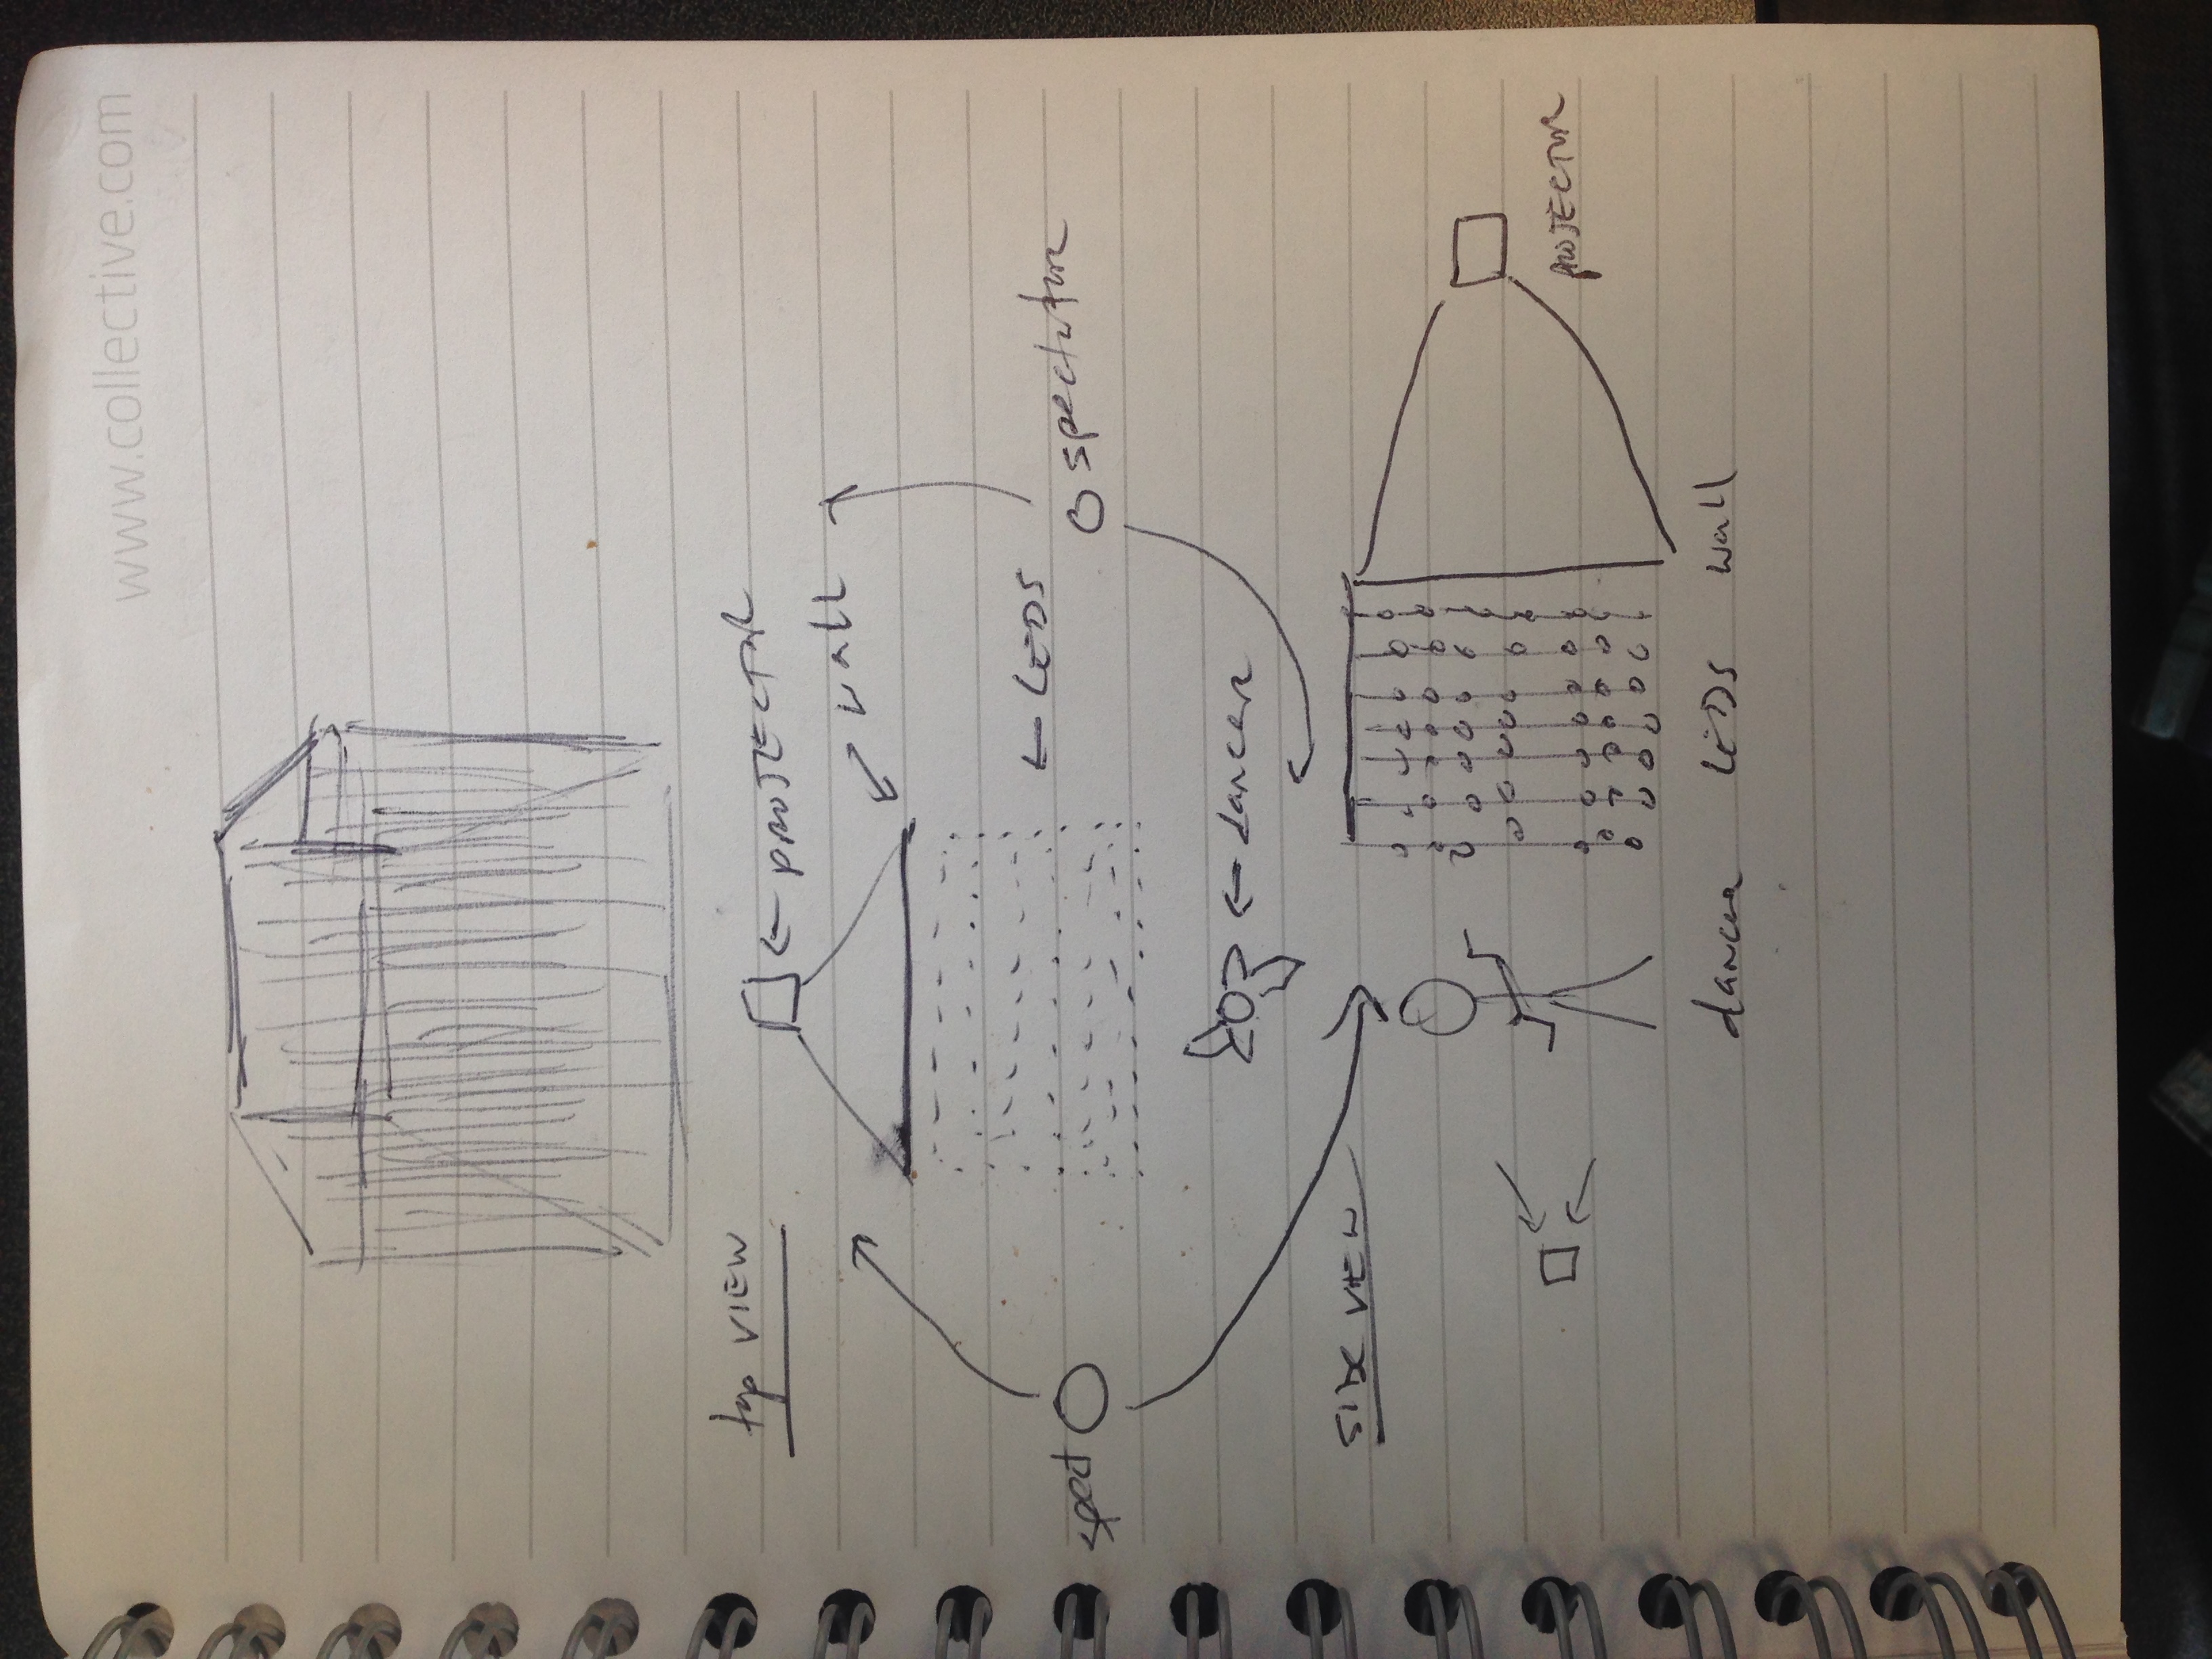 www.collective.com
top VIEW
← PROJECTOR
wall
← LEDS
spect
spectator
← dancer
SIDE VIEW
PROJECTOR
dancer LEDS wall